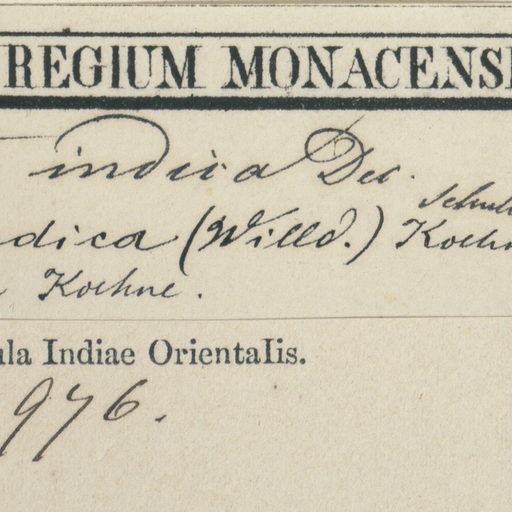 REGIUM MONACENS
indica Dec.
dica (Willd.) Koehn
Koehne.
ula Indiae Orientalis.
976.